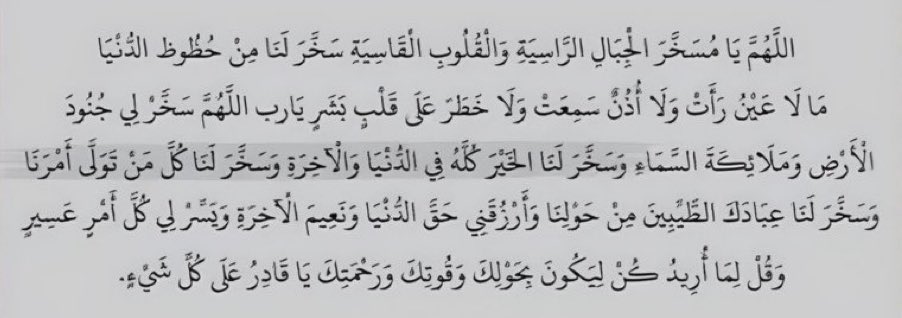 اللَّهُمَّ يَا مُسَخَّرَ الْجِبَالِ الرَّاسِيَةِ وَالْقُلُوبِ الْقَاسِيَةِ سَخَّرَ لَنَا مِنْ حُظُوظِ الدُّنْيَا
مَا لَا عَيْنُ رَأَتْ وَلَا أُذُنٌ سَمِعَتْ وَلَا خَطَرَ عَلَى قَلْبٍ بَشَرٍ يَارب اللَّهُمَّ سَخَّرْ لِي جُنُودَ
الْأَرْضِ وَمَلَائِكَةَ السَّمَاءِ وَسَخَّرَ لَنَا الْخَيْرَ كُلَّهُ فِي الدُّنْيَا وَالْآخِرَةِ وَسَخَّرَ لَنَا كُلَّ مَنْ تَوَلَّى أَمْرَنَا
وَسَخَّرَ لَنَا عِبَادَكَ الطَّيِّبِينَ مِنْ حَوْلِنَا وَأَرْزُقَنِي حَقَّ الدُّنْيَا وَنَعِيمَ الْآخِرَةِ وَيَسَّرْ لِي كُلَّ أَمْرٍ عَسِيرٍ
وَقُلْ لِمَا أُرِيدُ كُنْ لِيَكُونَ بِحَوْلِكَ وَقُوتِكَ وَرَحْمَتِكَ يَا قَادِرُ عَلَى كُلَّ شَيْءٍ.